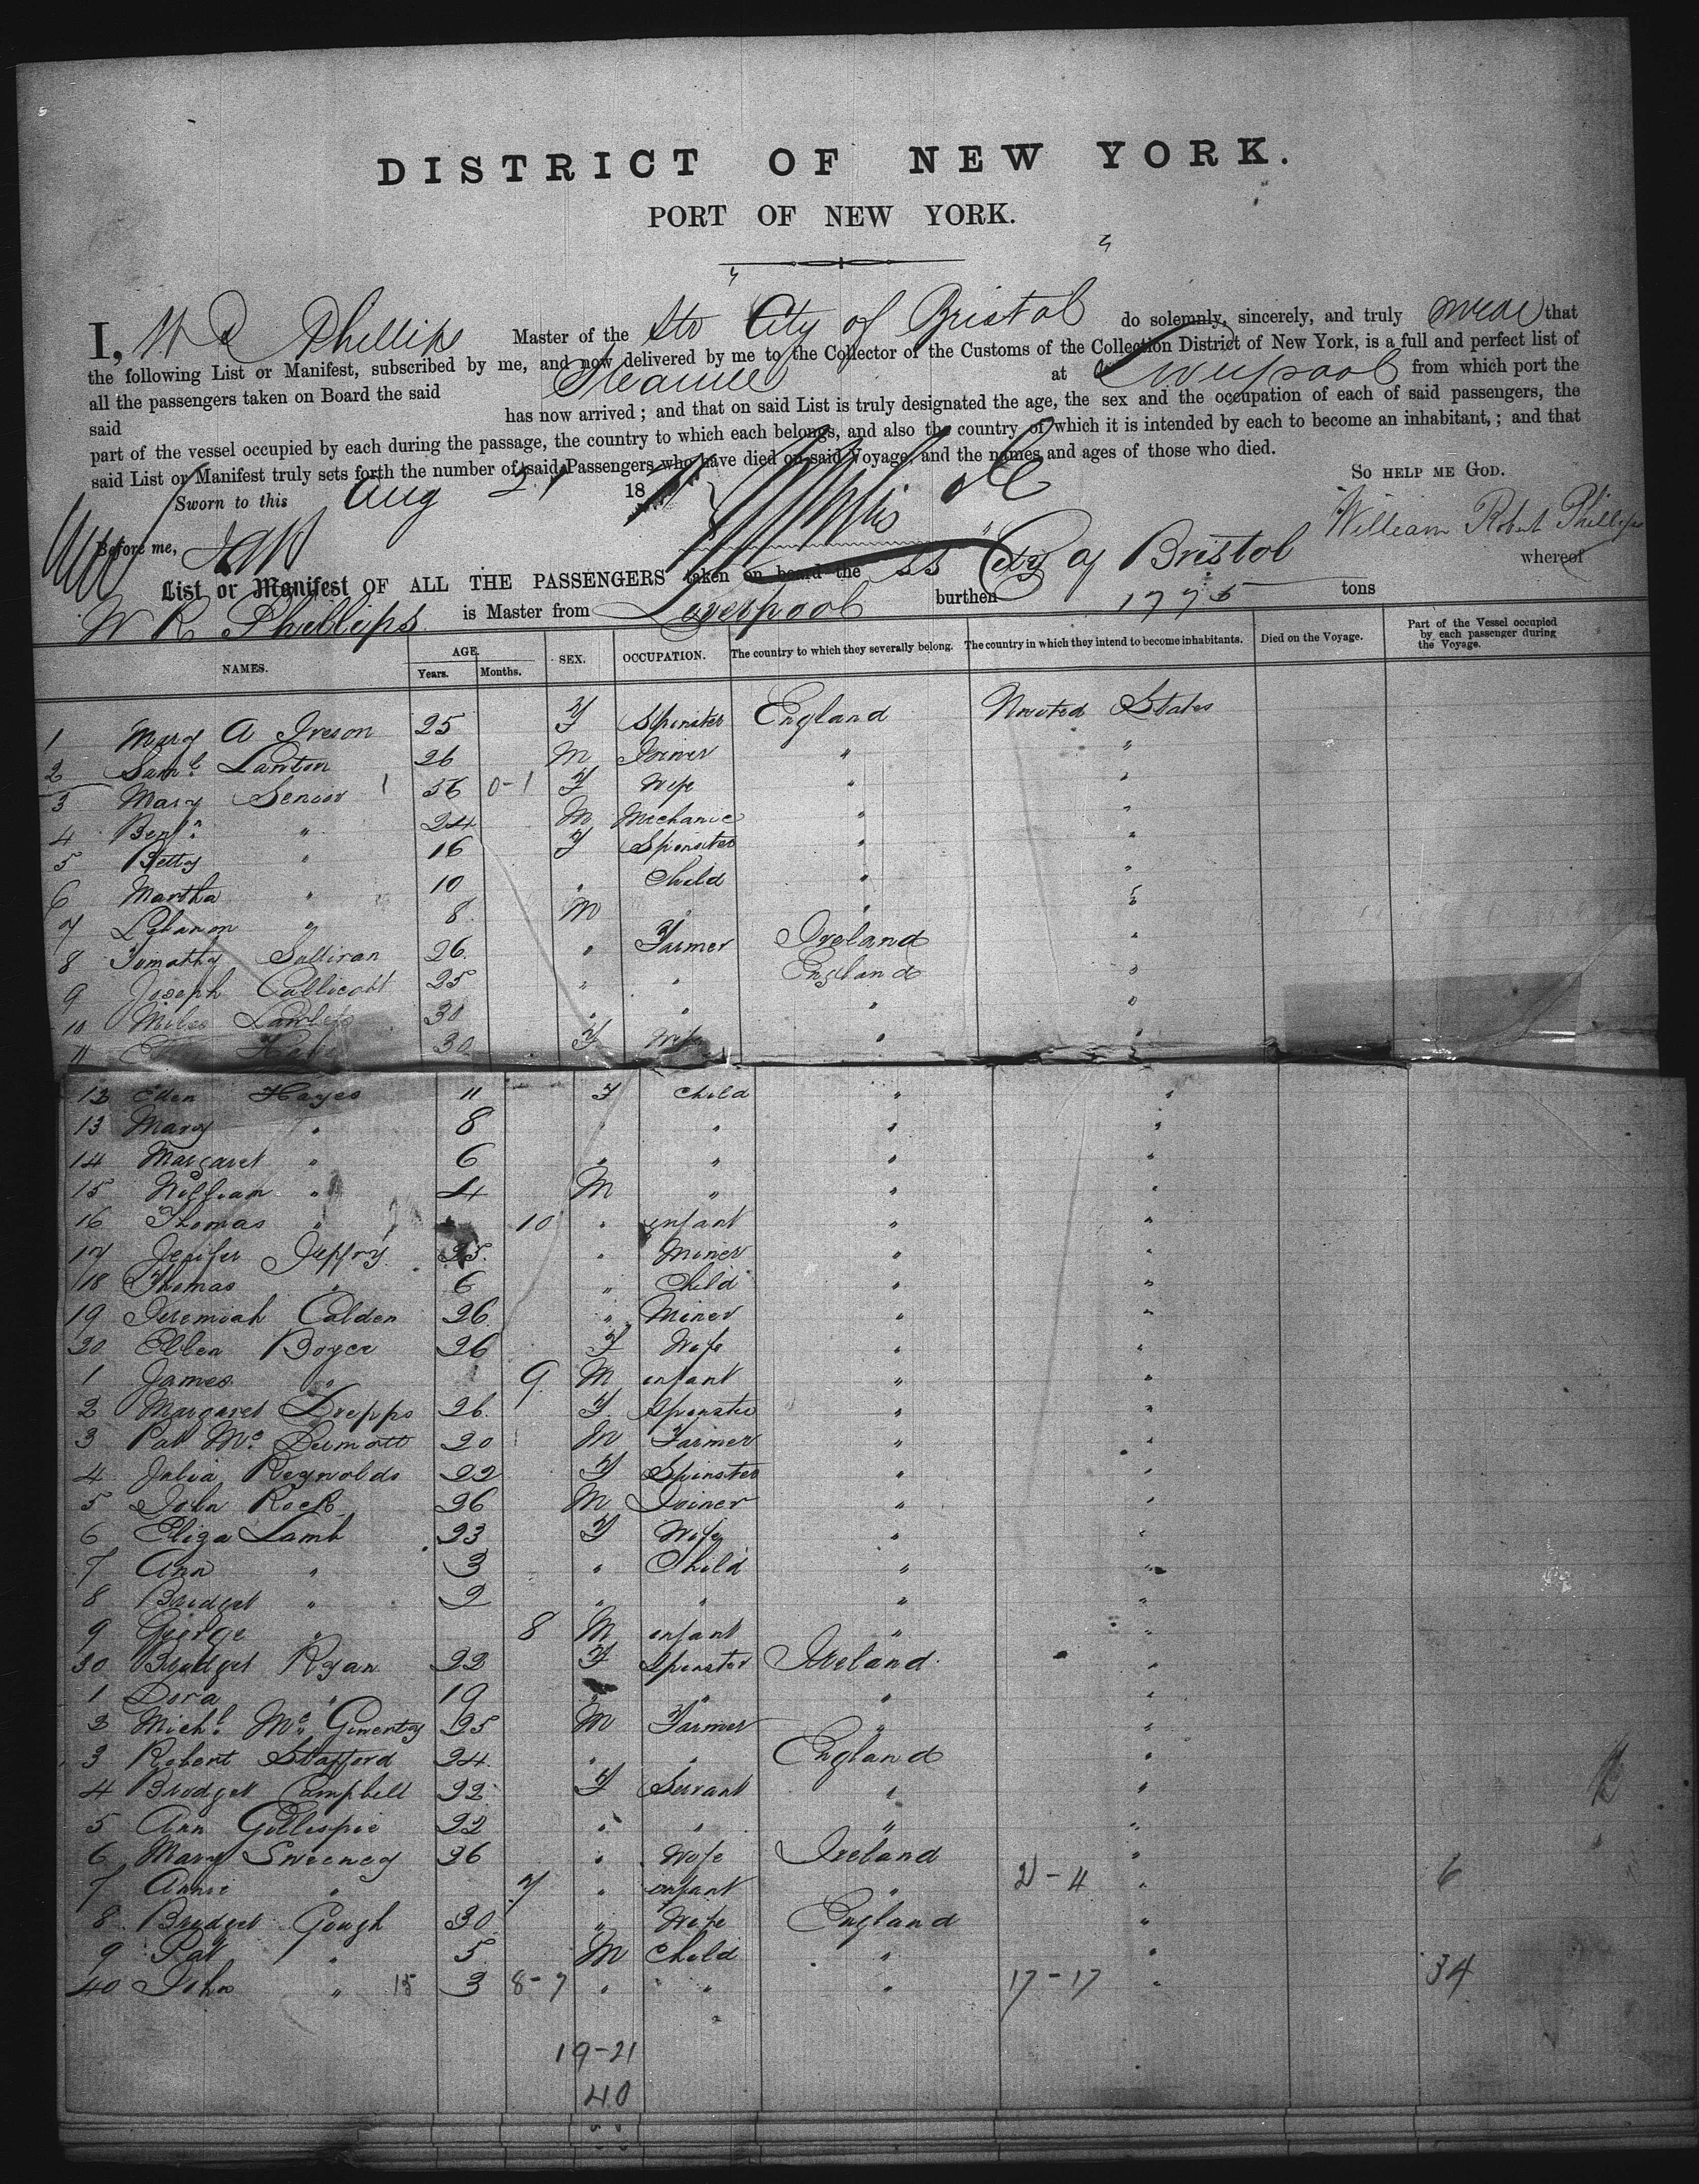 DISTRICT OF NEW YORK.
PORT OF NEW YORK.
I, W R Phillips Master of the Str City of Bristol do solemnly, sincerely, and truly swear that
the following List or Manifest, subscribed by me, and now delivered by me to the Collector of the Customs of the Collection District of New York, is a full and perfect list of
all the passengers taken on Board the said Steamer at Liverpool from which port the
said has now arrived ; and that on said List is truly designated the age, the sex and the occupation of each of said passengers, the
part of the vessel occupied by each during the passage, the country to which each belongs, and also the country of which it is intended by each to become an inhabitant, ; and that
said List or Manifest truly sets forth the number of said Passengers who have died on said Voyage, and the names and ages of those who died.
SO HELP ME GOD.
Sworn to this Aug 21 187
William Robert Phillips
Before me,
List or Manifest OF ALL THE PASSENGERS taken on board the SS City of Bristol whereof
W R Phillips is Master from Liverpool burthen 1775 tons
NAMES. AGE. Years. Months. SEX. OCCUPATION. The country to which they severally belong. The country in which they intend to become inhabitants. Died on the Voyage. Part of the Vessel occupied by each passenger during the Voyage.
1 Mary A Ireson 25 F Spinster England United States
2 Saml. Lawton 26 M Joiner " "
3 Mary Senior 1 56 0-1 F Wife " "
4 Benjn. " 24 M Mechanic " "
5 Betty " 16 F Spinster " "
6 Martha " 10 " Child " "
7 Lebanon " 8 M " " "
8 Timothy Sullivan 26 " Farmer Ireland "
9 Joseph Callicott 25 " " England "
10 Miles 30 " " " "
11 Hayes 30 F Wife " "
12 Ellen Hayes 11 F Child " "
13 Mary " 8 " " " "
14 Margaret " 6 " " " "
15 William " 4 M " " "
16 Thomas " 10 " infant " "
17 Jenifer Jeffry 25 " Miner " "
18 Thomas " 6 " Child " "
19 Jeremiah Calden 26 " Miner " "
20 Ellen Boyce 26 F Wife " "
1 James " 9 M infant " "
2 Margaret Drepps 26 F Spinster " "
3 Pat Mc. Dermott 20 M Farmer " "
4 Julia Reynolds 22 F Spinster " "
5 John Rock 26 M Joiner " "
6 Eliza Lamb 23 F Wife " "
7 Ann " 3 " Child " "
8 Bridget " 2 " " " "
9 George " 8 M infant " "
30 Bridget Ryan 22 F Spinster Ireland "
1 Dora " 19 " " " "
2 Michl. Mc. Ginenty 25 M Farmer " "
3 Robert Stafford 24 " " England "
4 Bridget Campbell 22 F Servant " "
5 Ann Gillespie 22 " " " "
6 Mary Sweeney 36 " Wife Ireland "
7 Annie " 7 " infant " 2-4 " 6
8 Bridget Gough 30 " Wife England "
9 Pat " 5 M Child " "
40 John " 15 3 8-7 " " " 17-17 " 34
19-21
40